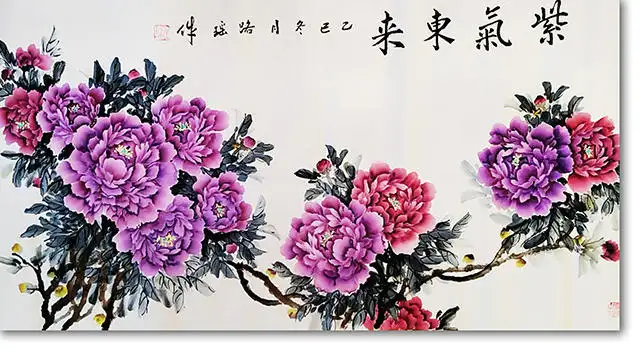 紫氣東来
乙巳冬月路瑶作